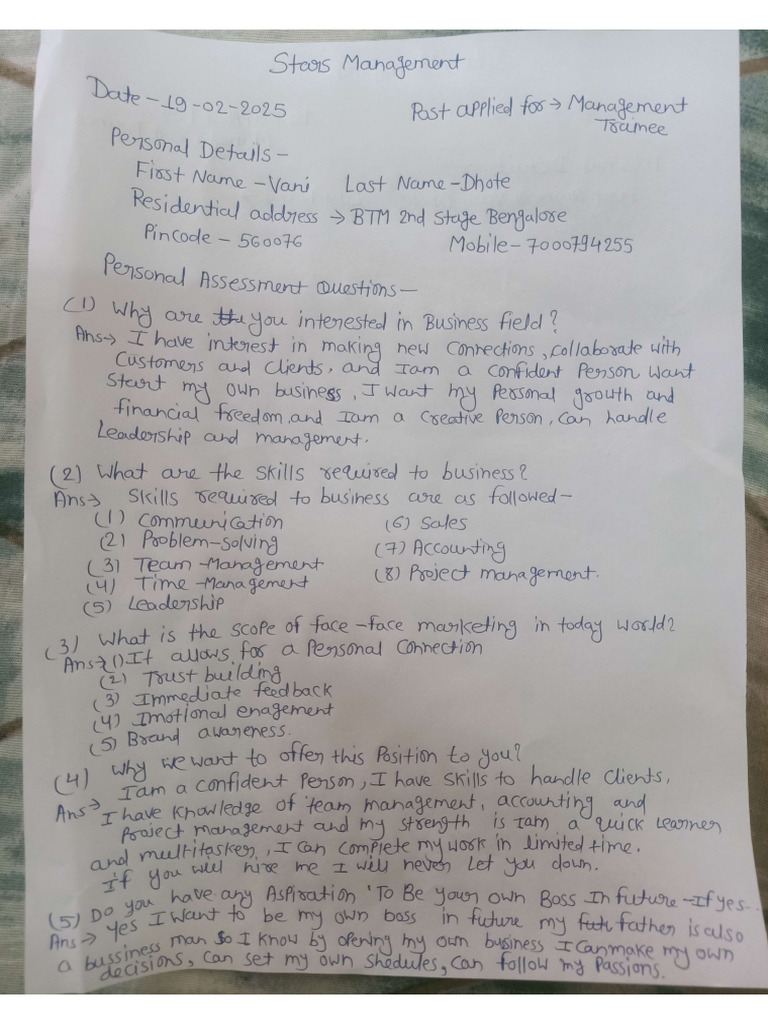 Stars Management
Date - 19-02-2025 Post applied for → Management
Trainee
Personal Details -
First Name - Vani Last Name - Dhote
Residential address → BTM 2nd Stage Bengalore
Pincode - 560076 Mobile - 7000794255
Personal Assessment Questions -
(1) Why are you interested in Business field?
Ans → I have interest in making new Connections, Collaborate with
Customers and Clients, and I am a Confident Person, Want
Start my own business, I Want my Personal growth and
financial freedom, and I am a Creative Person, Can handle
Leadership and management.
(2) What are the Skills required to business?
Ans → Skills required to business are as followed -
(1) Communication (6) Sales
(2) Problem-Solving (7) Accounting
(3) Team-Management (8) Project management.
(4) Time-Management
(5) Leadership
(3) What is the scope of face-face marketing in today world?
Ans → (1) It allows for a Personal Connection
(2) Trust building
(3) Immediate feedback
(4) Imotional enagement
(5) Brand awareness.
(4) Why we want to offer this Position to you?
I am a Confident Person, I have Skills to handle Clients,
Ans → I have Knowledge of team management, accounting and
Project management and my strength is I am a quick Learner
and multitasker, I Can Complete my work in limited time.
If you will hire me I will never Let you down.
(5) Do you have any Aspiration 'To Be your own Boss In future - If yes -
Ans → Yes I Want to be my own boss in future my father is also
a bussiness man So I know by opening my own business I Can make my own
decisions, Can set my own Shedules, Can follow my Passions.